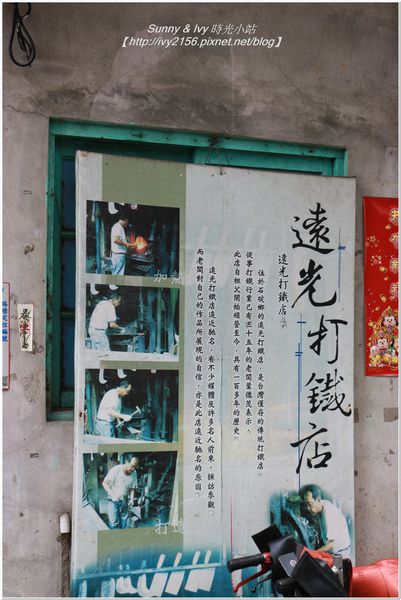 Sunny & Ivy 時光小站
【http://ivy2156.pixnet.net/blog】
遠光打鐵店
遠光打鐵店。
位於石碇鄉的遠光打鐵店，是台灣僅存的傳統打鐵店。
從事打鐵行業已有四十五年的老闆葉德茂表示，
此店自祖父開始經營至今，具有一百多年的歷史。
遠光打鐵店遠近馳名，有不少媒體及許多名人前來，採訪參觀，
而老闆對自己的作品所展現的自信，亦是此店遠近馳名的原因。
加熱
打造
路燈定位編號